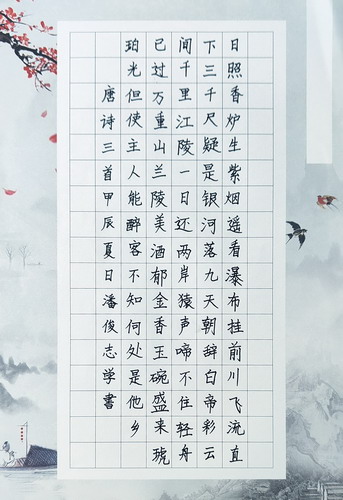 日照香炉生紫烟遥看瀑布挂前川飞流直
下三千尺疑是银河落九天朝辞白帝彩云
间千里江陵一日还两岸猿声啼不住轻舟
已过万重山兰陵美酒郁金香玉碗盛来琥
珀光但使主人能醉客不知何处是他乡
唐诗三首甲辰夏日潘俊志学書